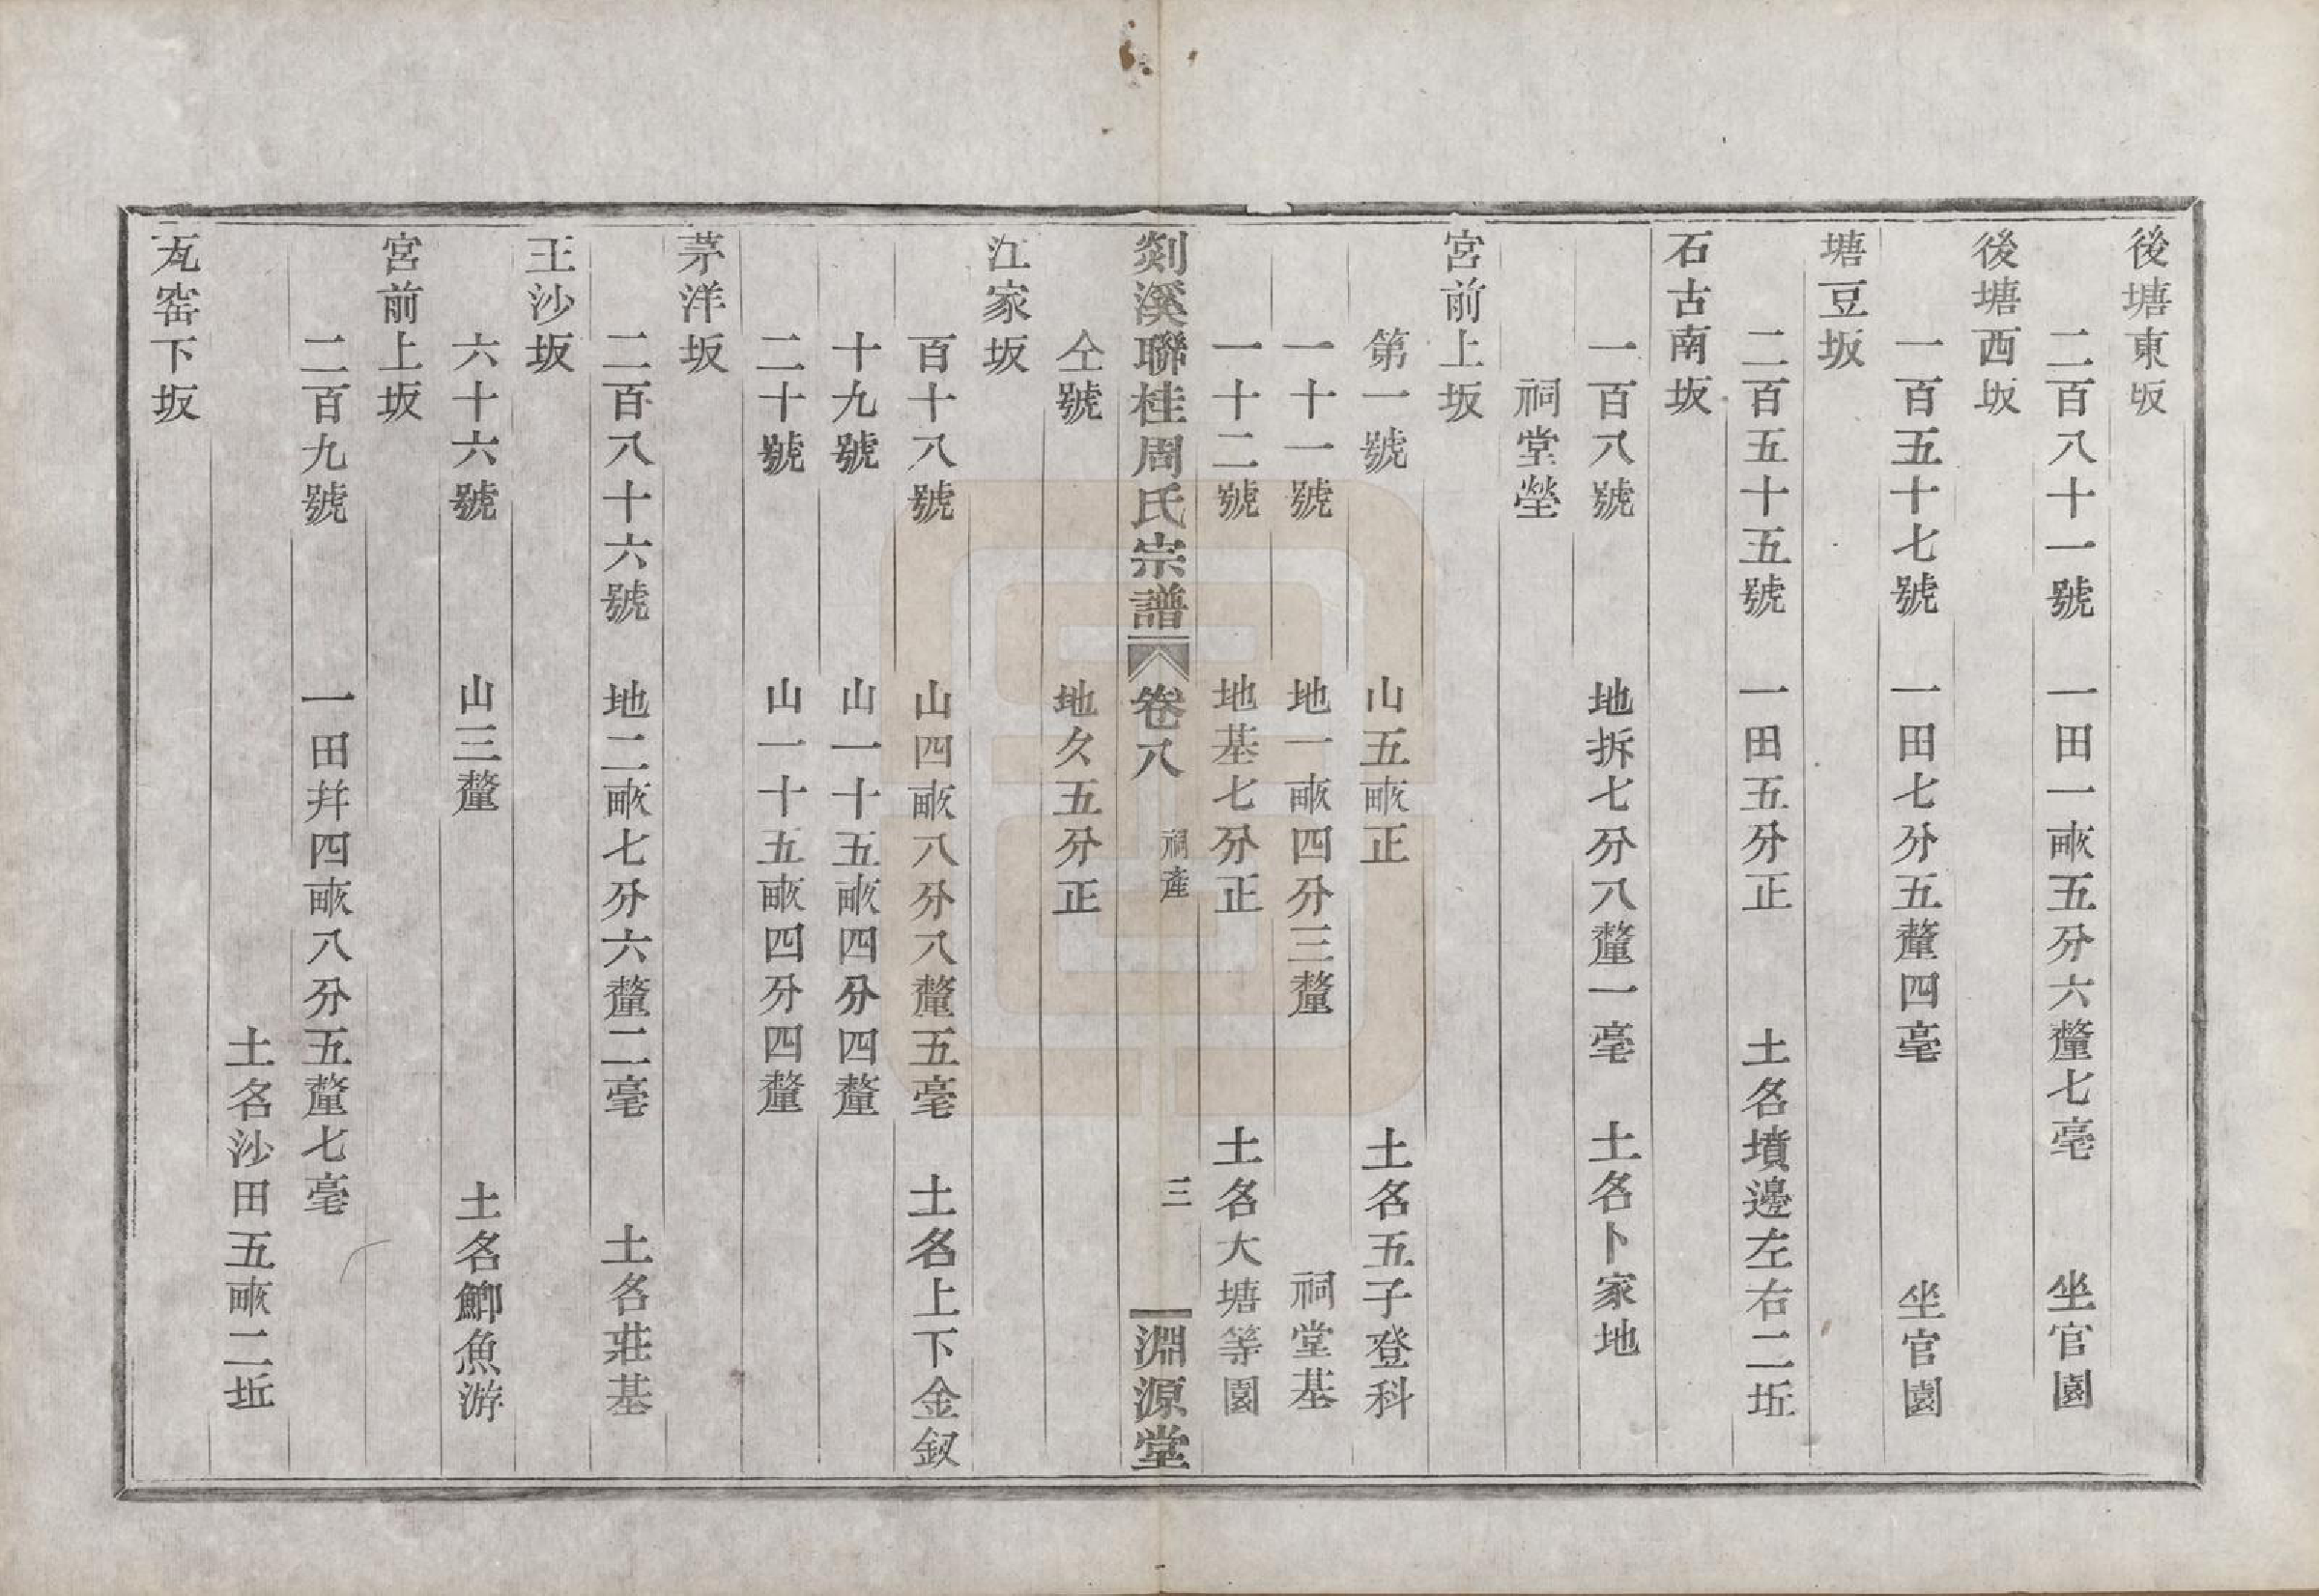 後塘東坂
二百八十一號　一田一畝五分六釐七毫　坐官園
後塘西坂
一百五十七號　一田七分五釐四毫　坐官園
塘豆坂
二百五十五號　一田五分正　土名墳邊左右二坵
石古南坂
一百八號　地拆七分八釐一毫　土名卜家地
祠堂塋
宮前上坂
第一號　山五畝正　土名五子登科
一十一號　地一畝四分三釐　祠堂基
一十二號　地基七分正　土名大塘等園
剡溪聯桂周氏宗譜　卷八　祠產　三　淵源堂
仝號　地久五分正
江家坂
百十八號　山四畝八分八釐五毫　土名上下金釵
十九號　山一十五畝四分四釐
二十號　山一十五畝四分四釐
茅洋坂
二百八十六號　地二畝七分六釐二毫　土名莊基
王沙坂
六十六號　山三釐　土名鯽魚游
宮前上坂
二百九號　一田幷四畝八分五釐七毫
土名沙田五畝二坵
瓦窑下坂